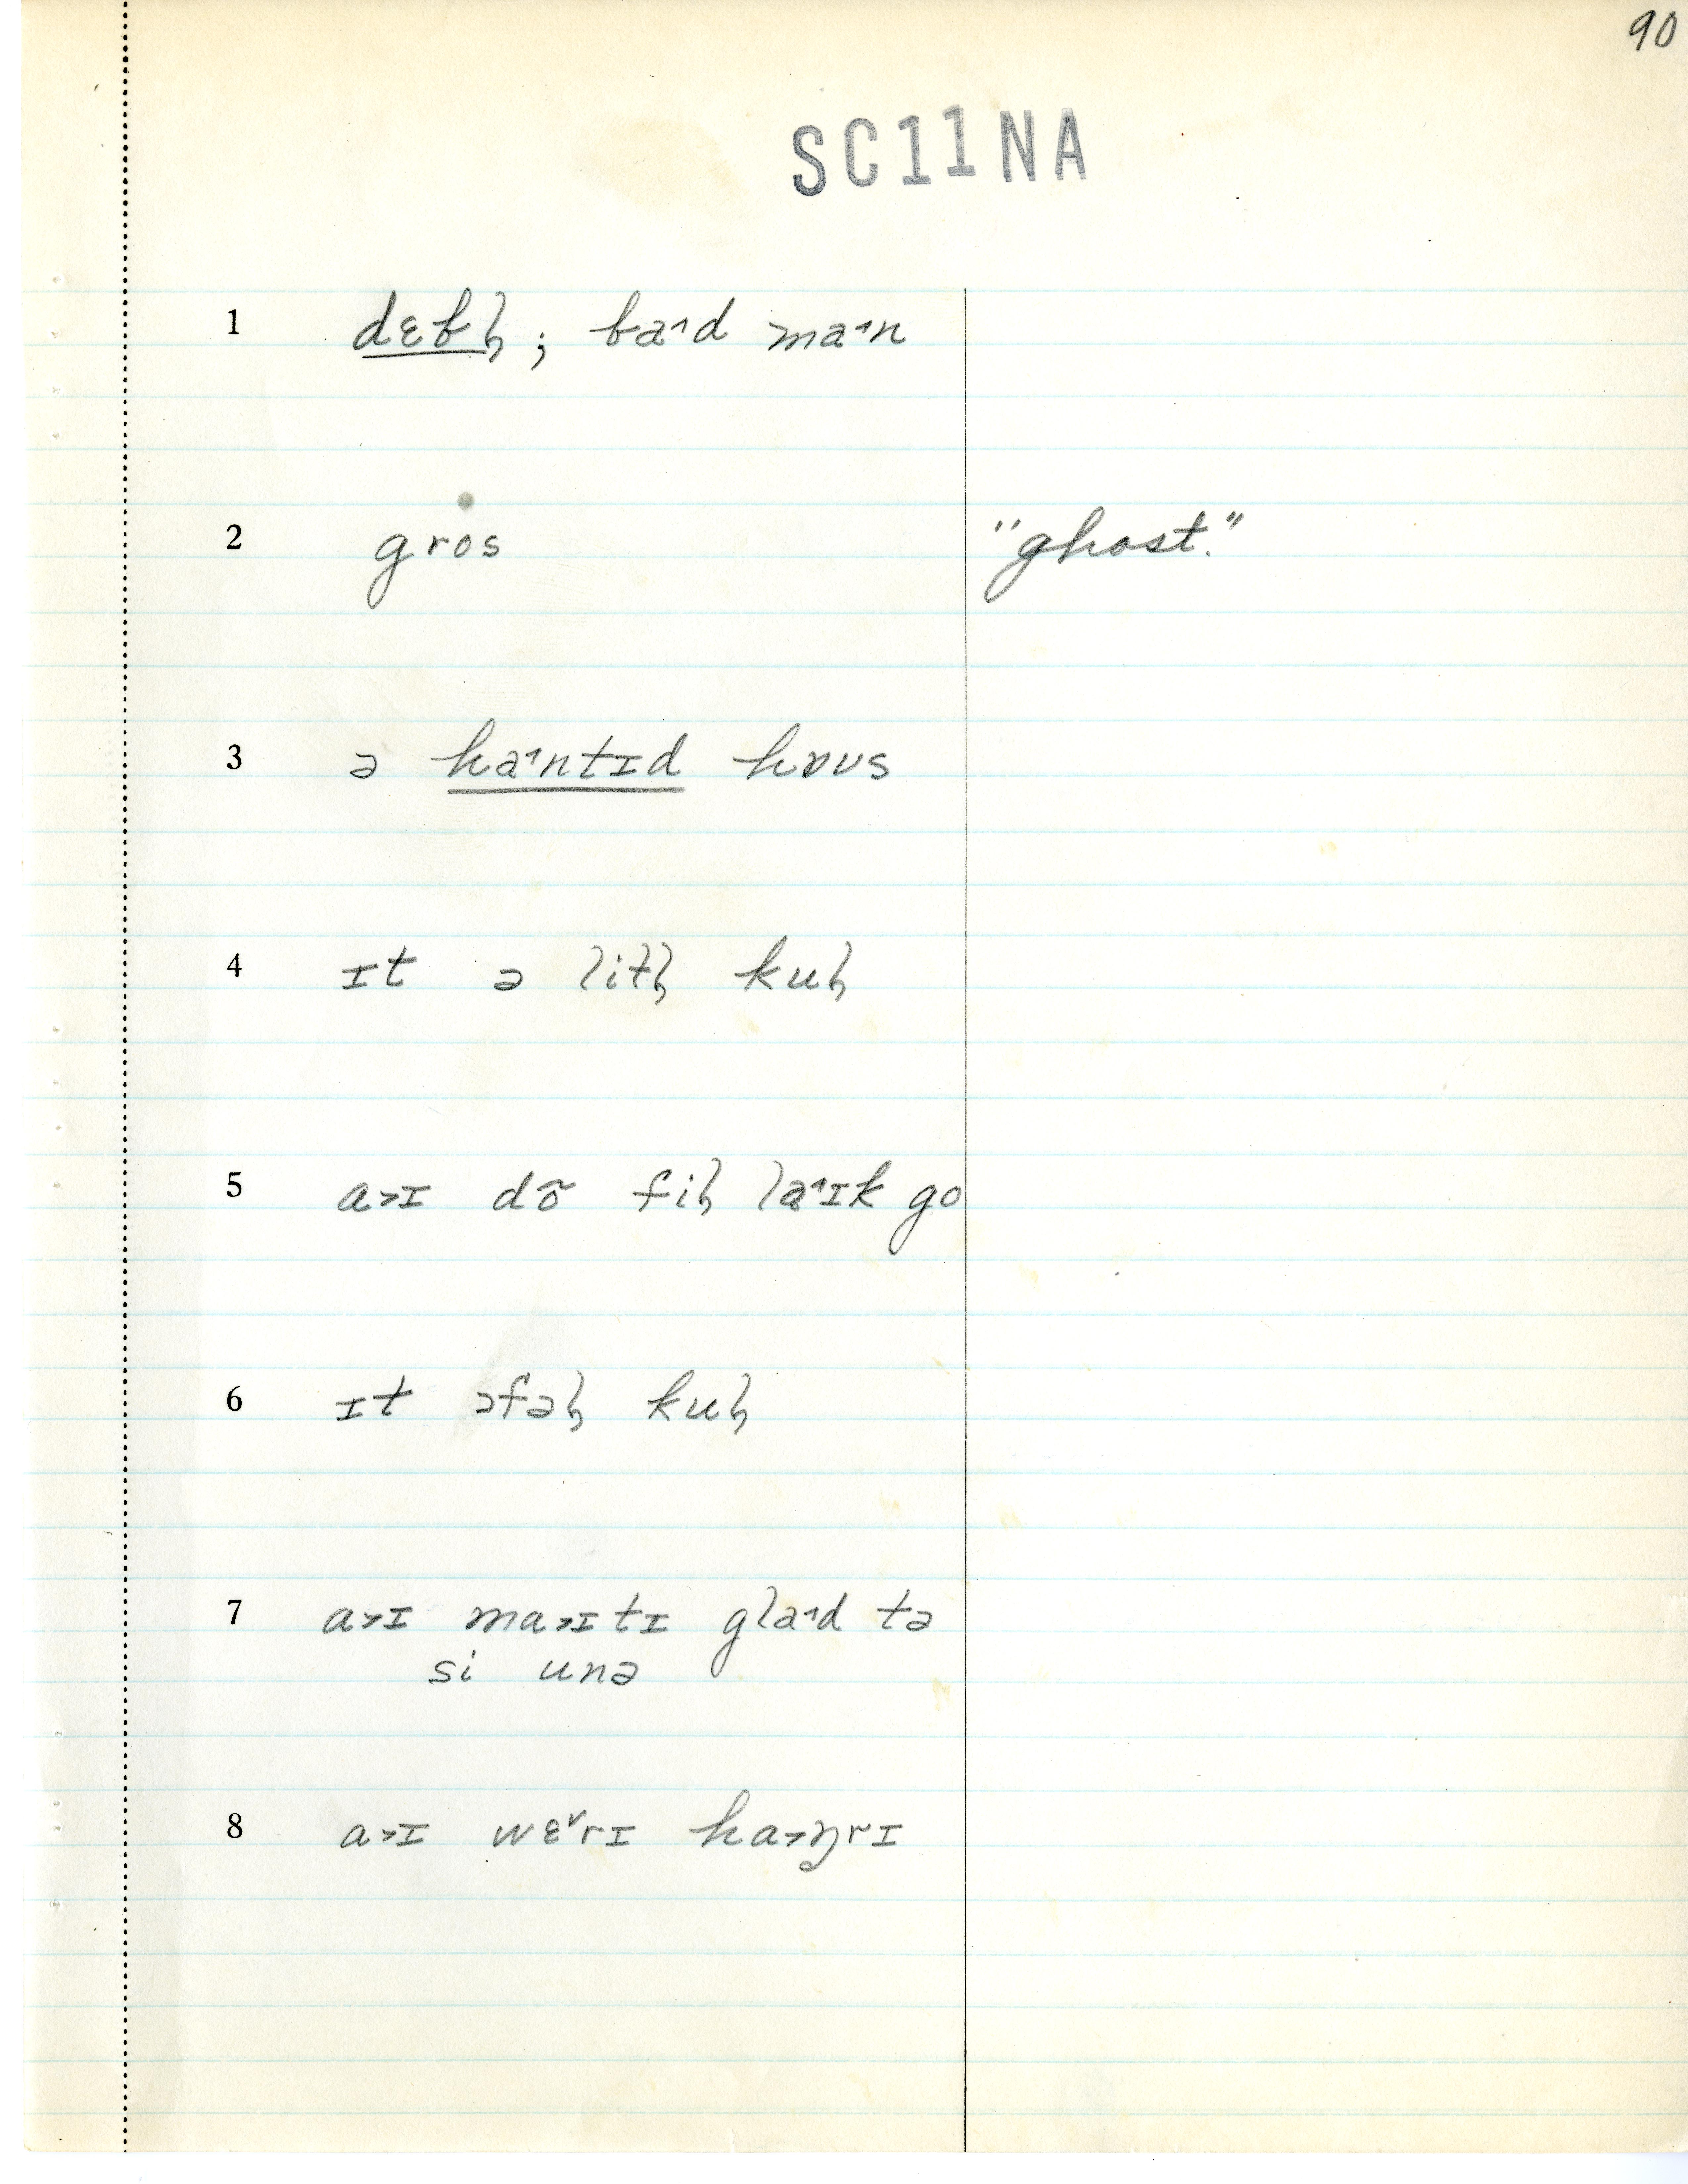 90
SC11NA
1 dɛbl̩ ; ba˄d ma˄n
2 gros "ghost."
3 ə ha˄ntɪd hɒʊs
4 ɪt ə litl̩ kul̩
5 a˃ɪ dõ fil̩ la˄ɪk go
6 ɪt əfəl̩ kul̩
7 a˃ɪ ma˃ɪtɪ gla˄d tə
si unə
8 a˃ɪ wɛ˅rɪ ha˃ŋrɪ